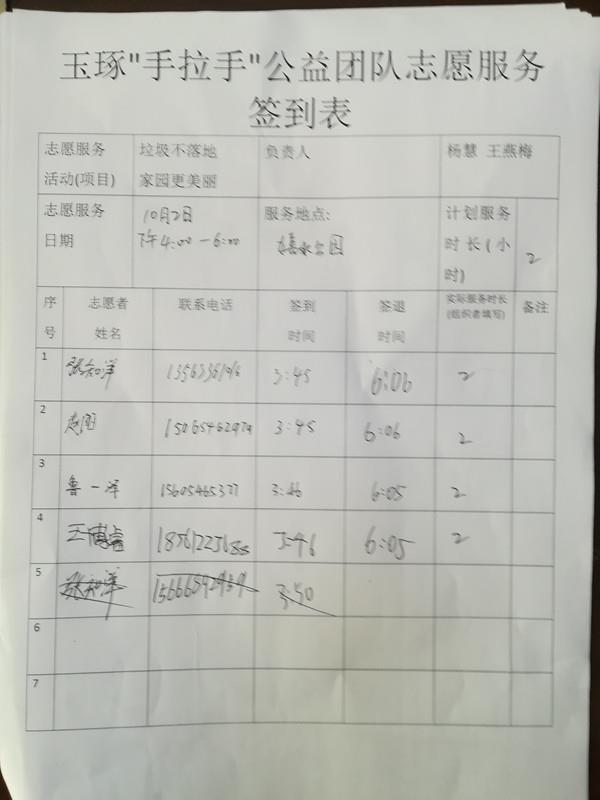 玉琢"手拉手"公益团队志愿服务
签到表
志愿服务 垃圾不落地 负责人 杨慧 王燕梅
活动(项目) 家园更美丽
志愿服务 10月2日 服务地点: 计划服务
日期 下午4:00-6:00 公园 时长(小 2
时)
序 志愿者 联系电话 签到 签退 实际服务时长 备注
号 姓名 时间 时间 (组织者填写)
1 张知洋 3:45 6:06 2
2 3:45 6:06 2
3 鲁一泽 15605465377 3:46 6:05 2
4 王博睿 3:46 6:05 2
5 张知洋 3:50
6
7